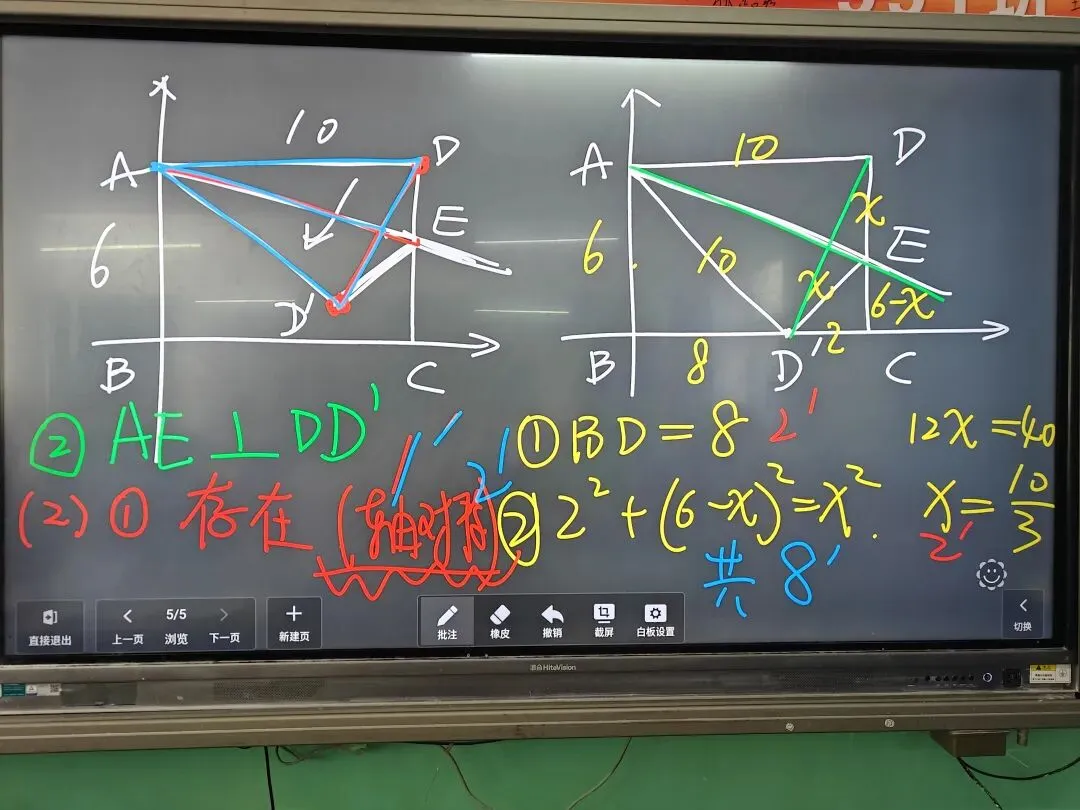 551班
10
A
D
E
6
D'
B
C
10
A
D
x
E
6
10
x
6-x
8
D'
2
B
C
② AE⊥DD'
1'
2'
(2) ① 存在 (轴对称)
① BD=8 2'
② 2²+(6-x)²=x².
12x=40
x=10/3
2'
共 8'
直接退出
上一页
5/5
浏览
下一页
新建页
批注
橡皮
撤销
截屏
白板设置
切换
HiteVision